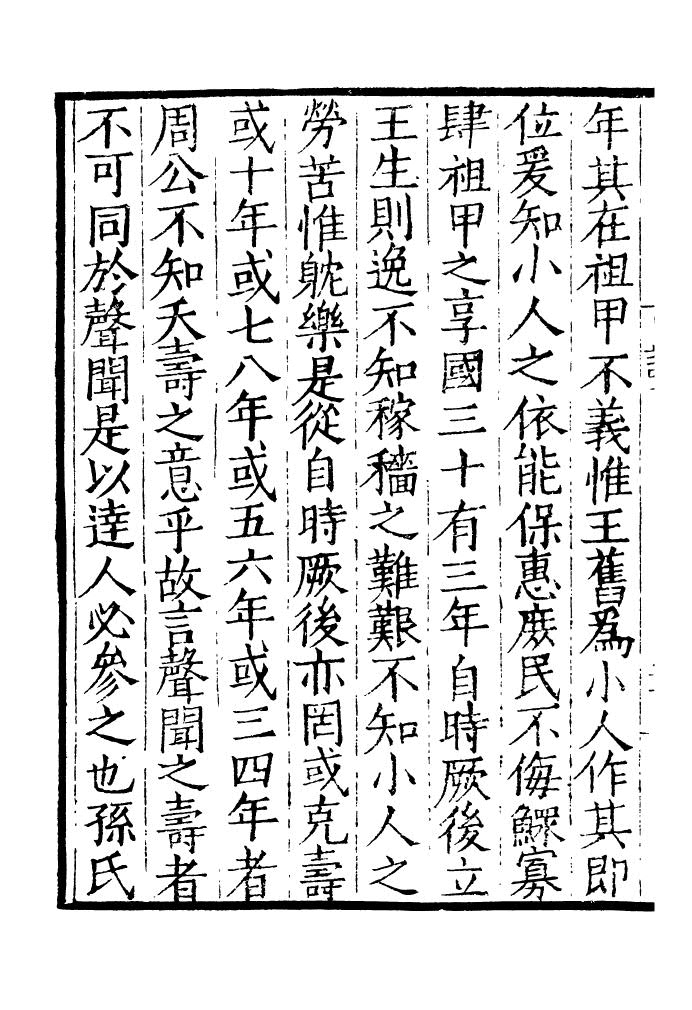 年其在祖甲不義惟王舊爲小人作其即
位爰知小人之依能保惠庶民不侮鰥寡
肆祖甲之享國三十有三年自時厥後立
王生則逸不知稼穡之難艱不知小人之
勞苦惟躭樂是從自時厥後亦罔或克壽
或十年或七八年或五六年或三四年者
周公不知夭壽之意乎故言聲聞之壽者
不可同於聲聞是以達人必參之也孫氏